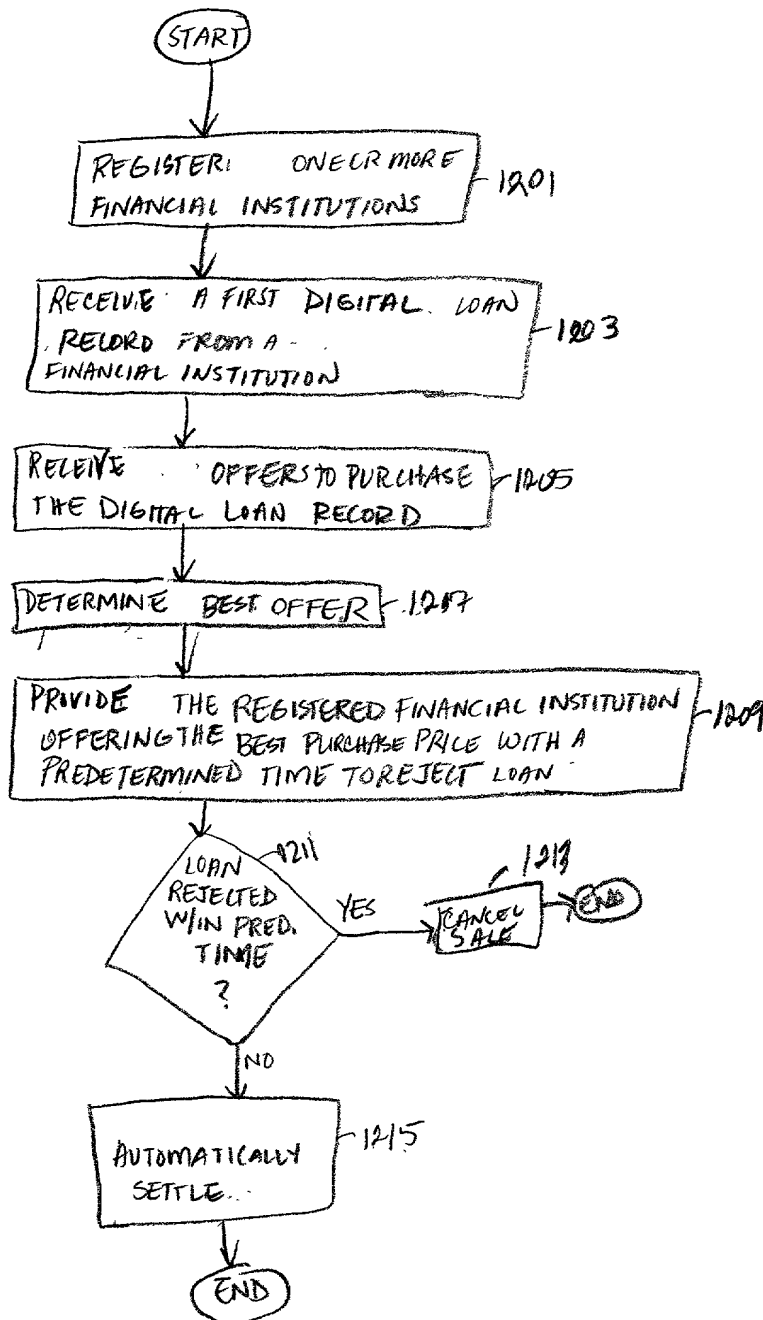 START
REGISTER: ONE OR MORE
FINANCIAL INSTITUTIONS
1201
RECEIVE A FIRST DIGITAL LOAN
RECORD FROM A
FINANCIAL INSTITUTION
1203
RECEIVE OFFERS TO PURCHASE
THE DIGITAL LOAN RECORD
1205
DETERMINE BEST OFFER
1207
PROVIDE THE REGISTERED FINANCIAL INSTITUTION
OFFERING THE BEST PURCHASE PRICE WITH A
PREDETERMINED TIME TO REJECT LOAN
1209
LOAN
REJECTED
W/IN PRED.
TIME
?
1211
YES
CANCEL
SALE
1213
END
NO
AUTOMATICALLY
SETTLE...
1215
END